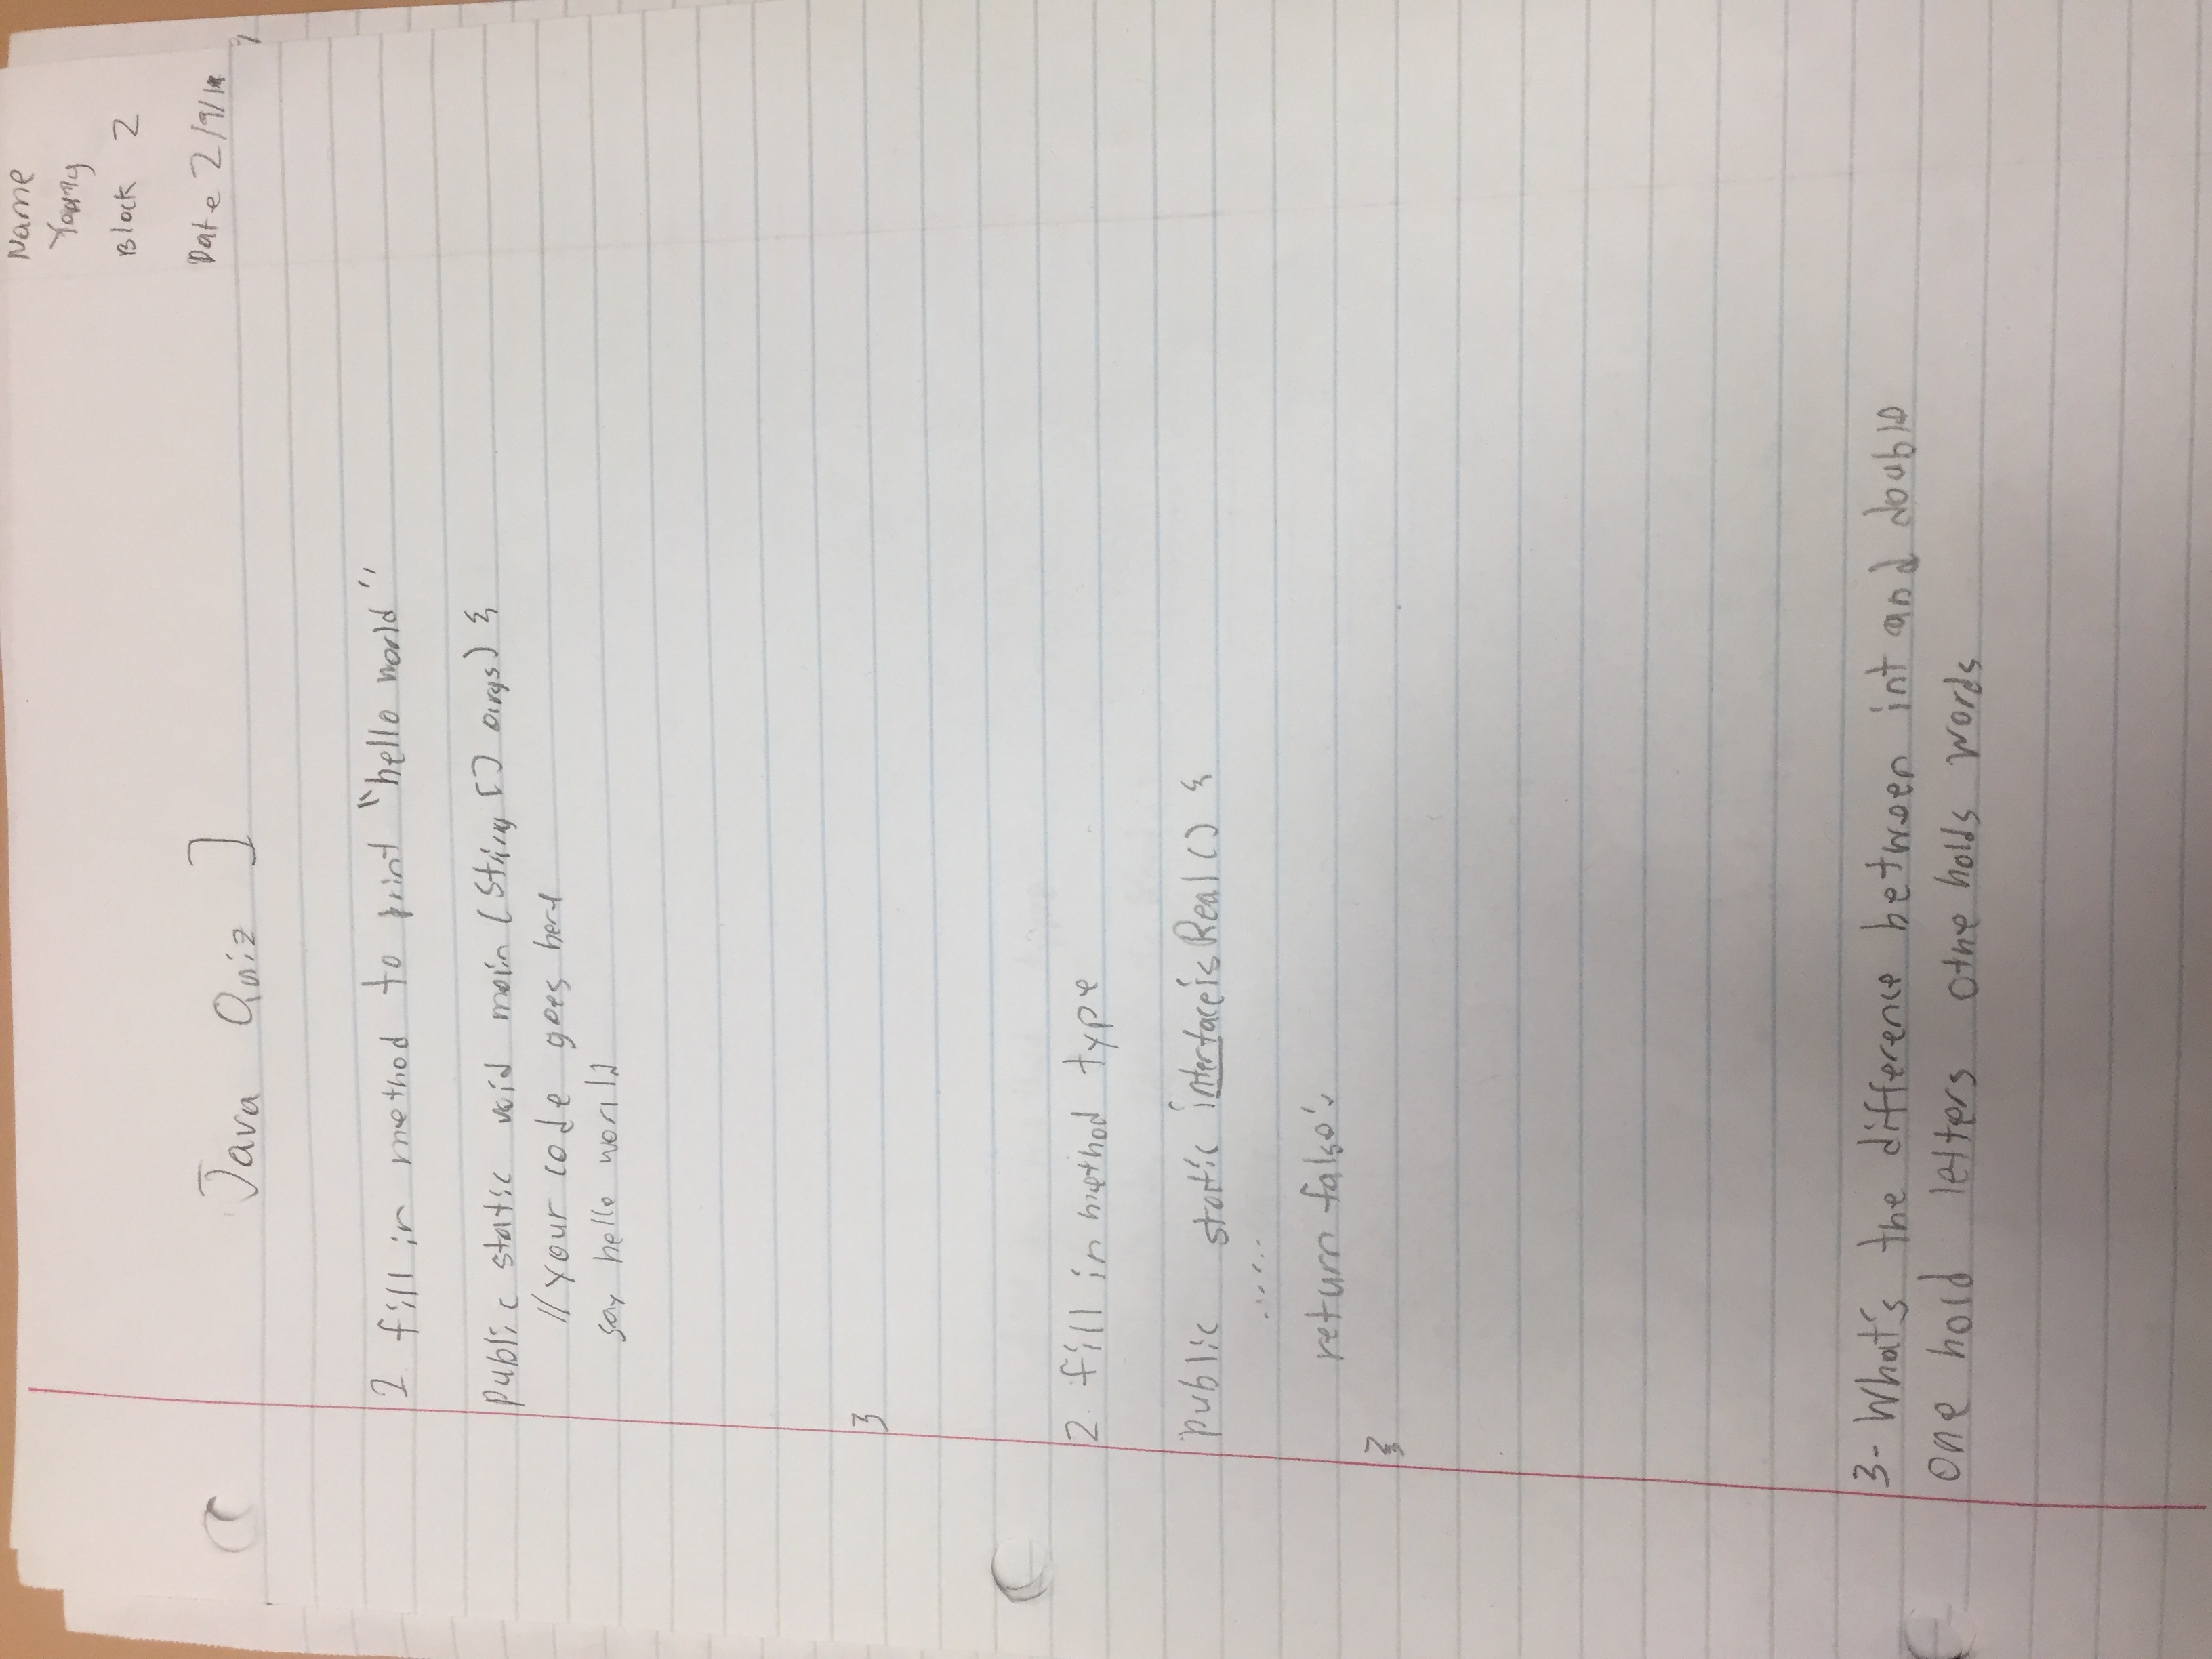 Name
Block 2
Date 2/9/1
Java Quiz 1
1. fill in method to print "hello world"
public static void main (String [] args) {
// your code goes here
say hello world
}
2. fill in method type
public static interface isReal () {
......
return false;
}
3- What's the difference between int and double
one hold letters othe holds words